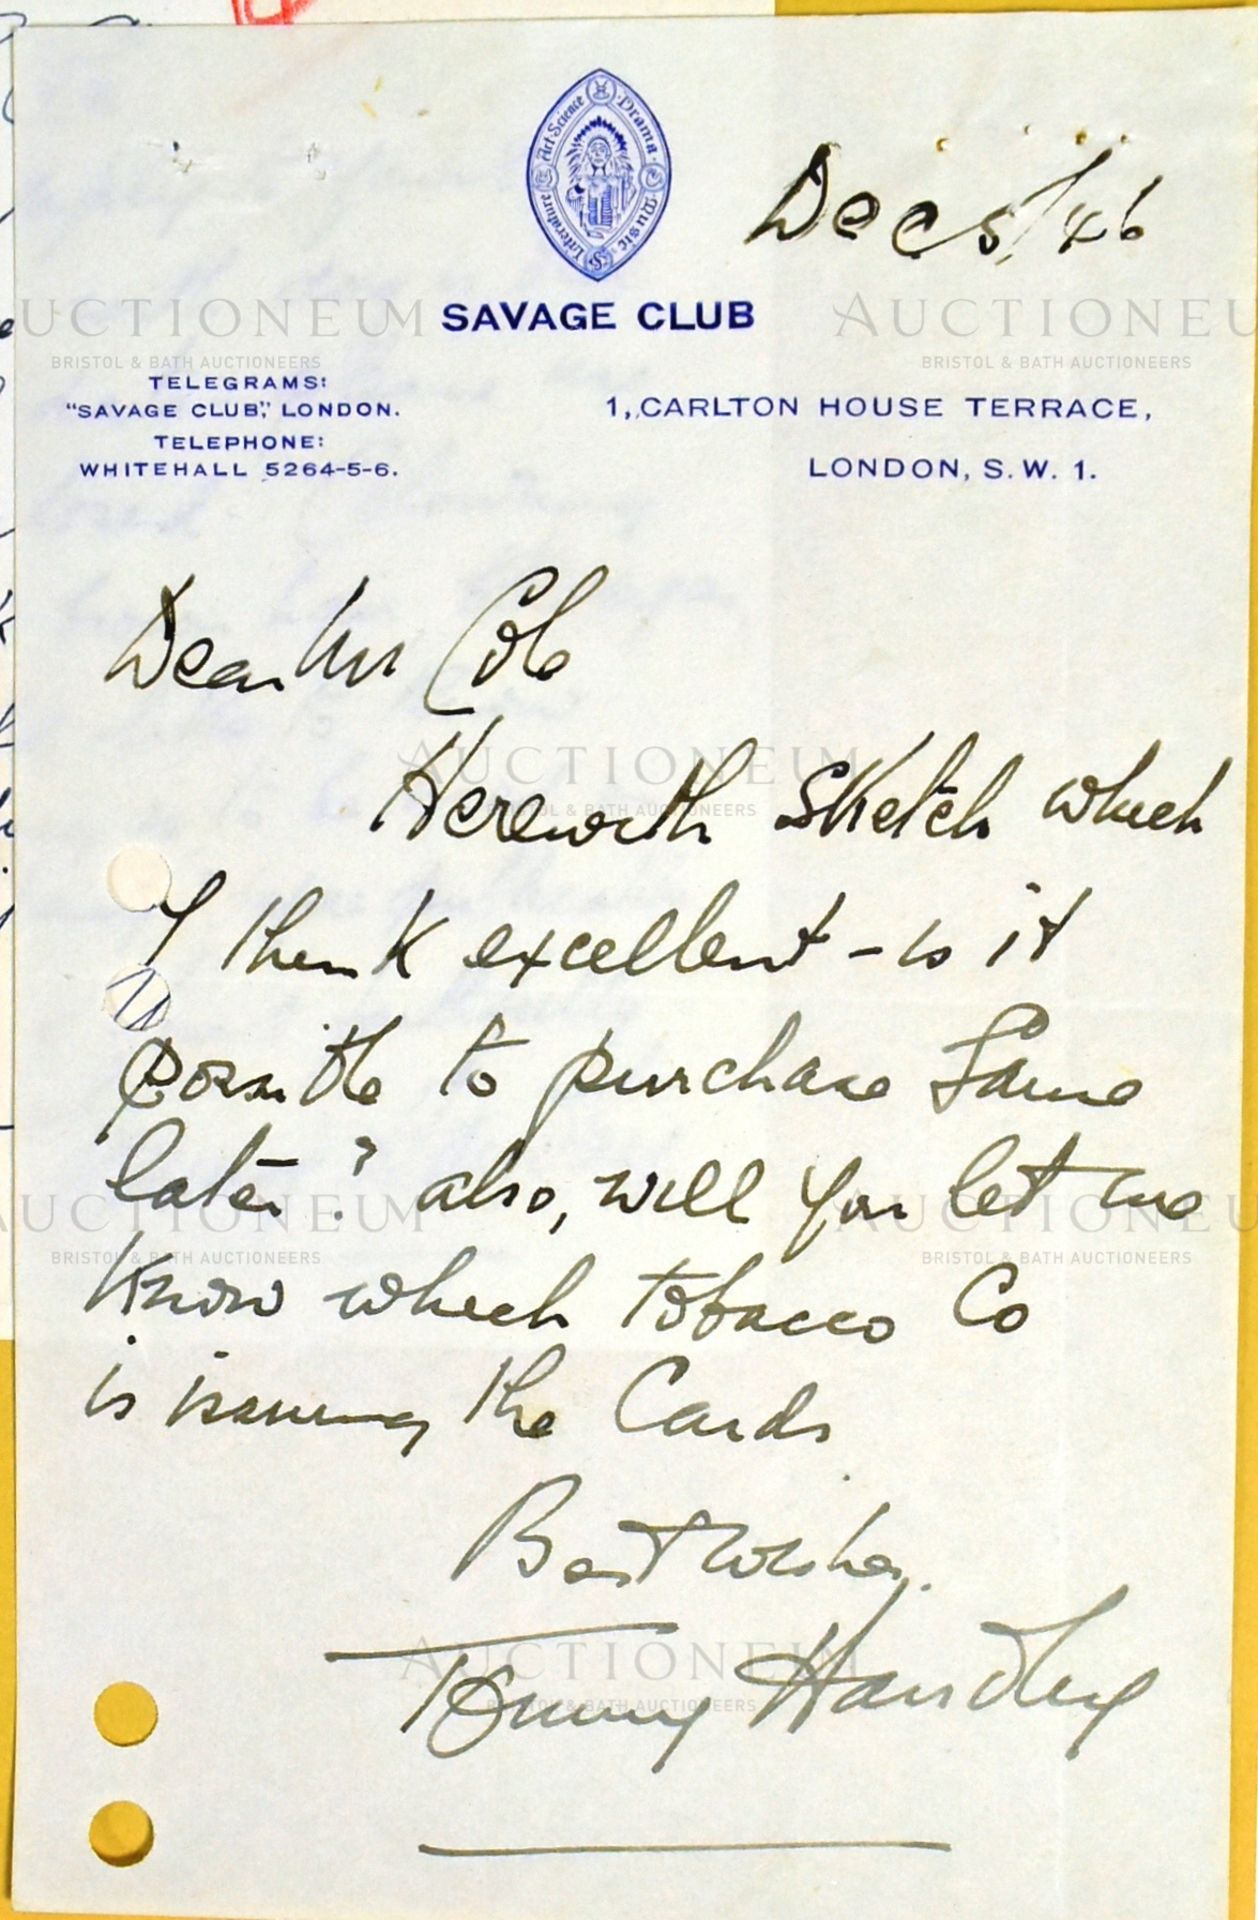 Art · Science · Drama · Music · Literature
Dec 5/46
SAVAGE CLUB
TELEGRAMS:
"SAVAGE CLUB," LONDON.
TELEPHONE:
WHITEHALL 5264-5-6.
1, CARLTON HOUSE TERRACE,
LONDON, S.W. 1.
Dear Mr Cole
Herewith sketch which
I think excellent – is it
possible to purchase same
later? also, will you let me
know which tobacco Co
is issuing the Cards
Best wishes.
Tommy Handley
AUCTIONEUM
BRISTOL & BATH AUCTIONEERS
AUCTIONEU
BRISTOL & BATH AUCTIONEERS
AUCTIONEUM
BRISTOL & BATH AUCTIONEERS
AUCTIONEUM
BRISTOL & BATH AUCTIONEERS
AUCTIONEU
BRISTOL & BATH AUCTIONEERS
AUCTIONEUM
BRISTOL & BATH AUCTIONEERS